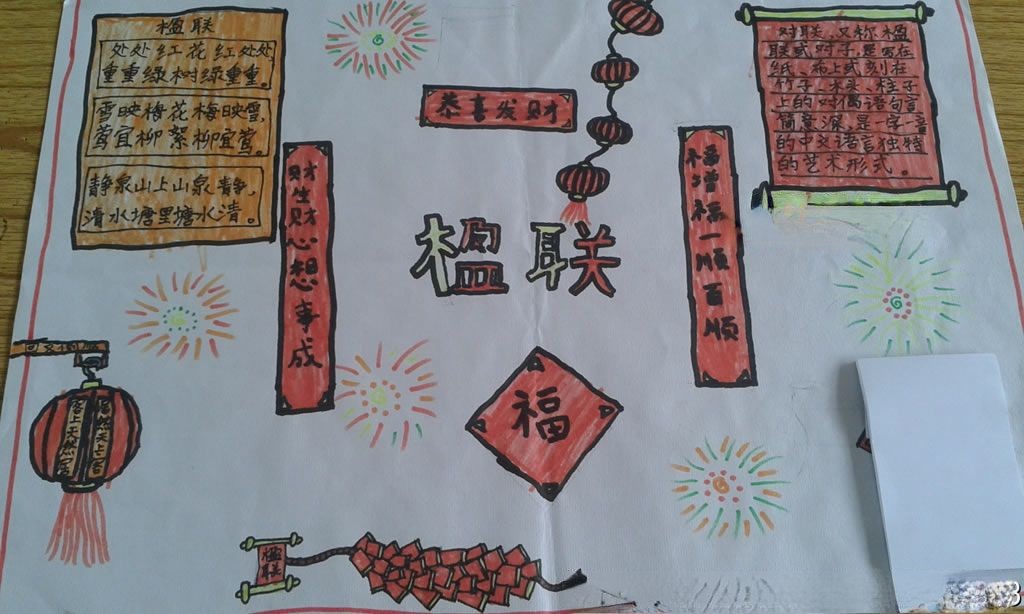 楹联
处处红花红处处,
重重绿树绿重重。
雪映梅花梅映雪,
莺宜柳絮柳宜莺。
静泉山上山泉静,
清水塘里塘水清。
恭喜发财
对联,又称楹
联或对子,是写在
纸、布上或刻在
竹子、木头、柱子
上的对偶语句言
简意深,是一字一音
的中文语言独特
的艺术形式。
财生财心想事成
福增福一顺百顺
楹联
福
客上天然居
居然天上客
楹联